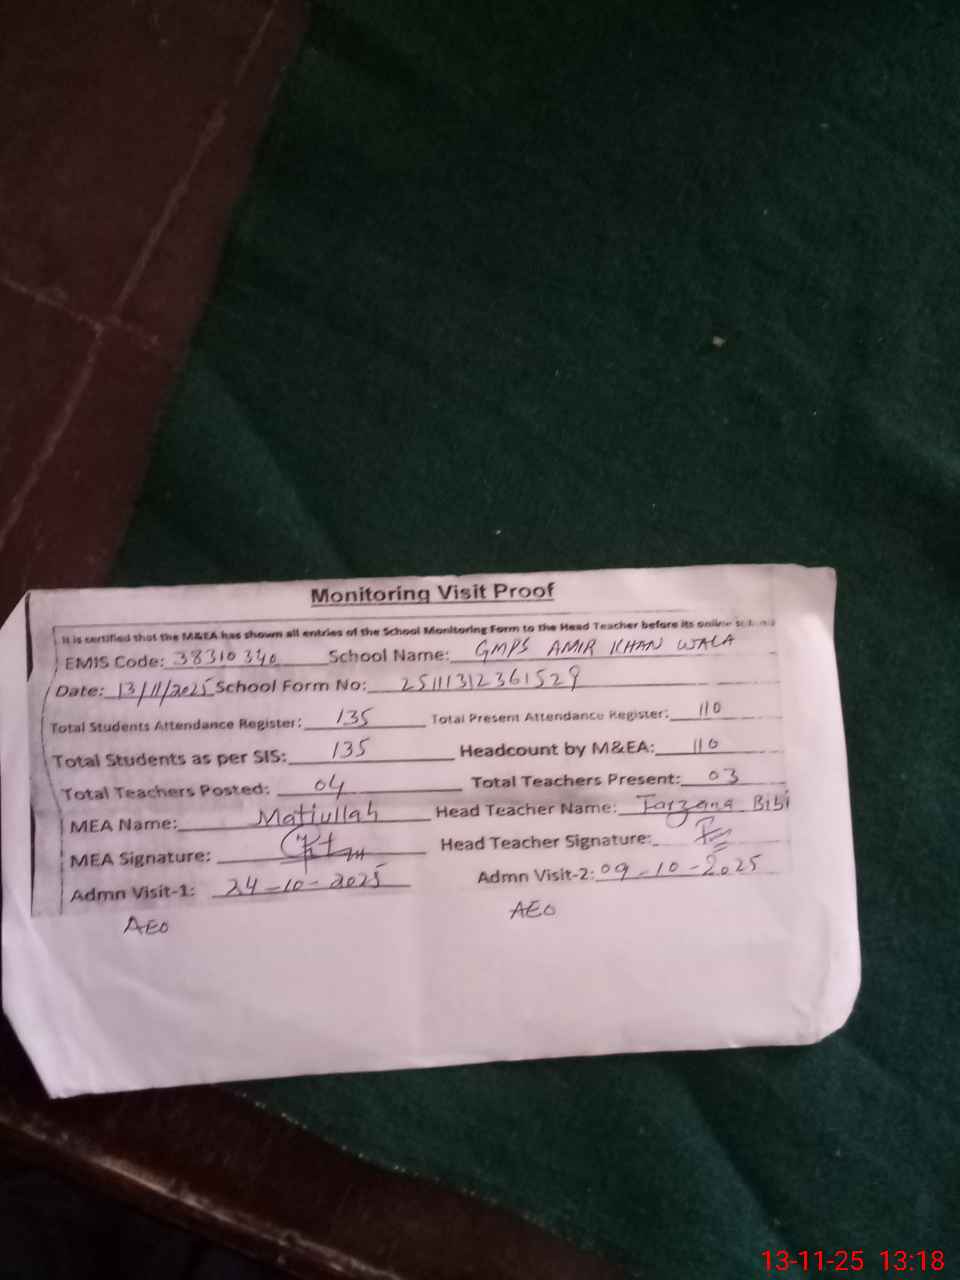 Monitoring Visit Proof
It is certified that the M&EA has shown all entries of the School Monitoring Form to the Head Teacher before its online
EMIS Code: 38310340 School Name: GMPS AMIR KHAN WALA
Date: 13/11/2025 School Form No: 2511131236 1529
Total Students Attendance Register: 135 Total Present Attendance Register: 110
Total Students as per SIS: 135 Headcount by M&EA: 110
Total Teachers Posted: 04 Total Teachers Present: 03
MEA Name: Matiullah Head Teacher Name: Farzana Bibi
MEA Signature: Head Teacher Signature:
Admn Visit-1: 24-10-2025 Admn Visit-2: 09-10-2025
AEO AEO
13-11-25 13:18